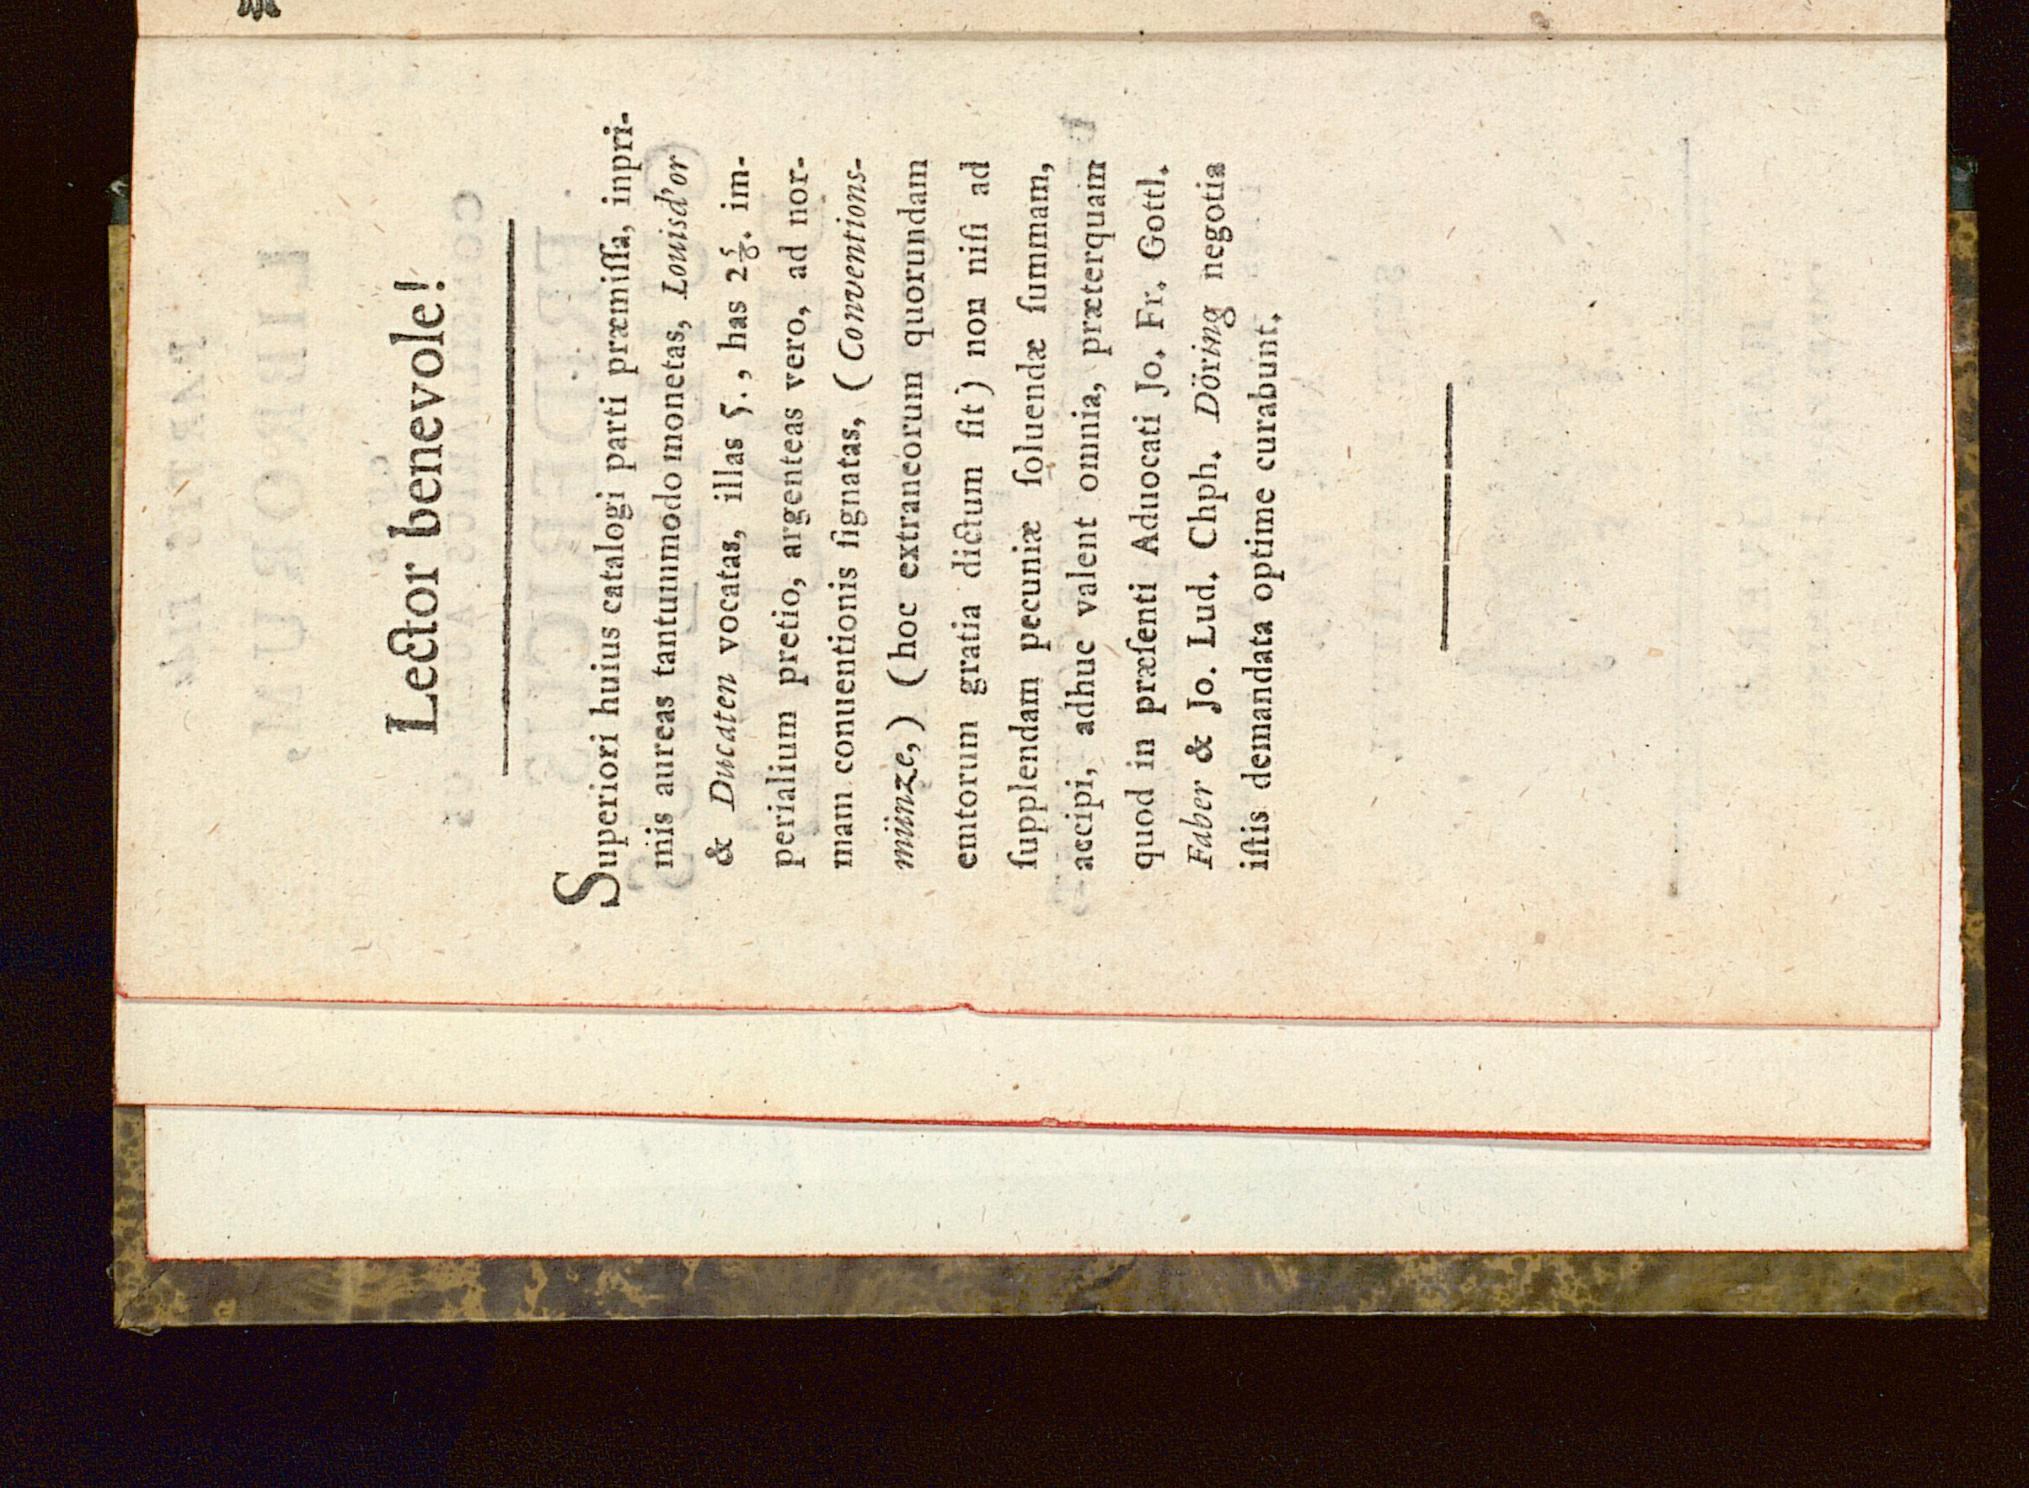 Lector benevole!
Superiori huius catalogi parti præmiſſa, inpri-
mis aureas tantummodo monetas, Louisd'or
& Ducaten vocatas, illas 5., has 2⅚. im-
perialium pretio, argenteas vero, ad nor-
mam conuentionis ſignatas, (Conventions-
münze,) (hoc extraneorum quorundam
emtorum gratia dictum ſit) non niſi ad
ſupplendam pecuniæ ſoluendæ ſummam,
accipi, adhuc valent omnia, præterquam
quod in præſenti Aduocati Jo. Fr. Gottl.
Faber & Jo. Lud. Chph. Döring negotia
iſtis demandata optime curabunt.